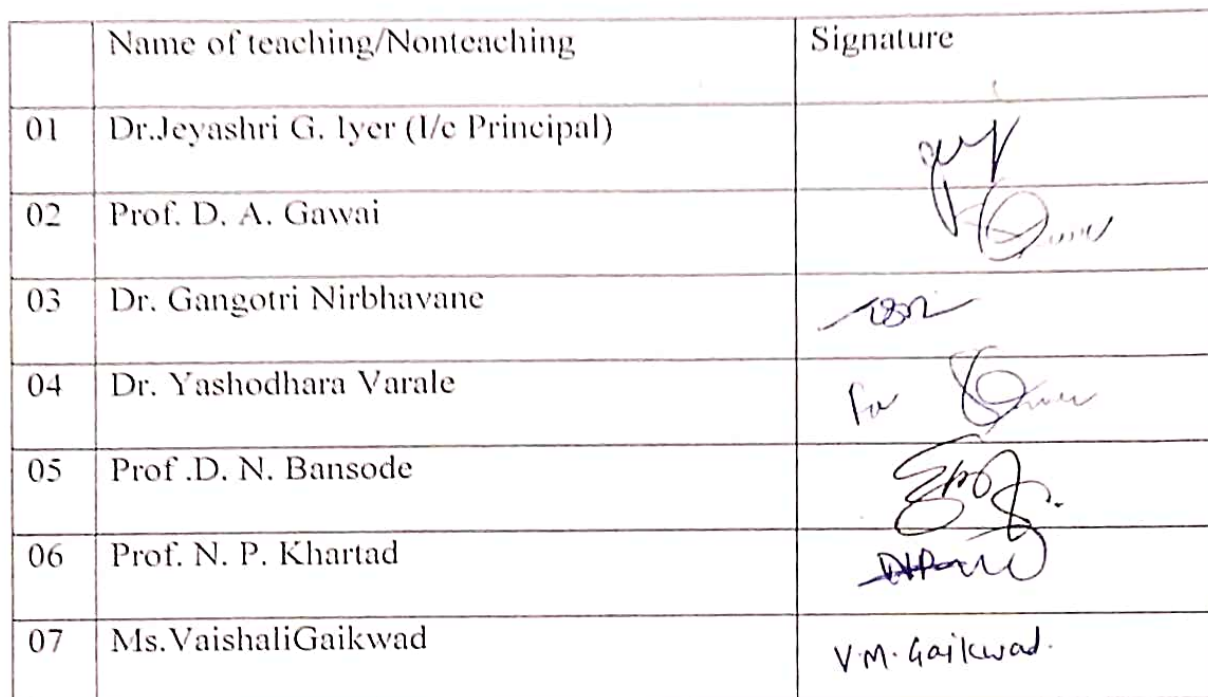 Name of teaching/Nonteaching Signature
01 Dr.Jeyashri G. Iyer (I/c Principal)
02 Prof. D. A. Gawai
03 Dr. Gangotri Nirbhavane
04 Dr. Yashodhara Varale For
05 Prof .D. N. Bansode
06 Prof. N. P. Khartad
07 Ms.VaishaliGaikwad V.M. Gaikwad.